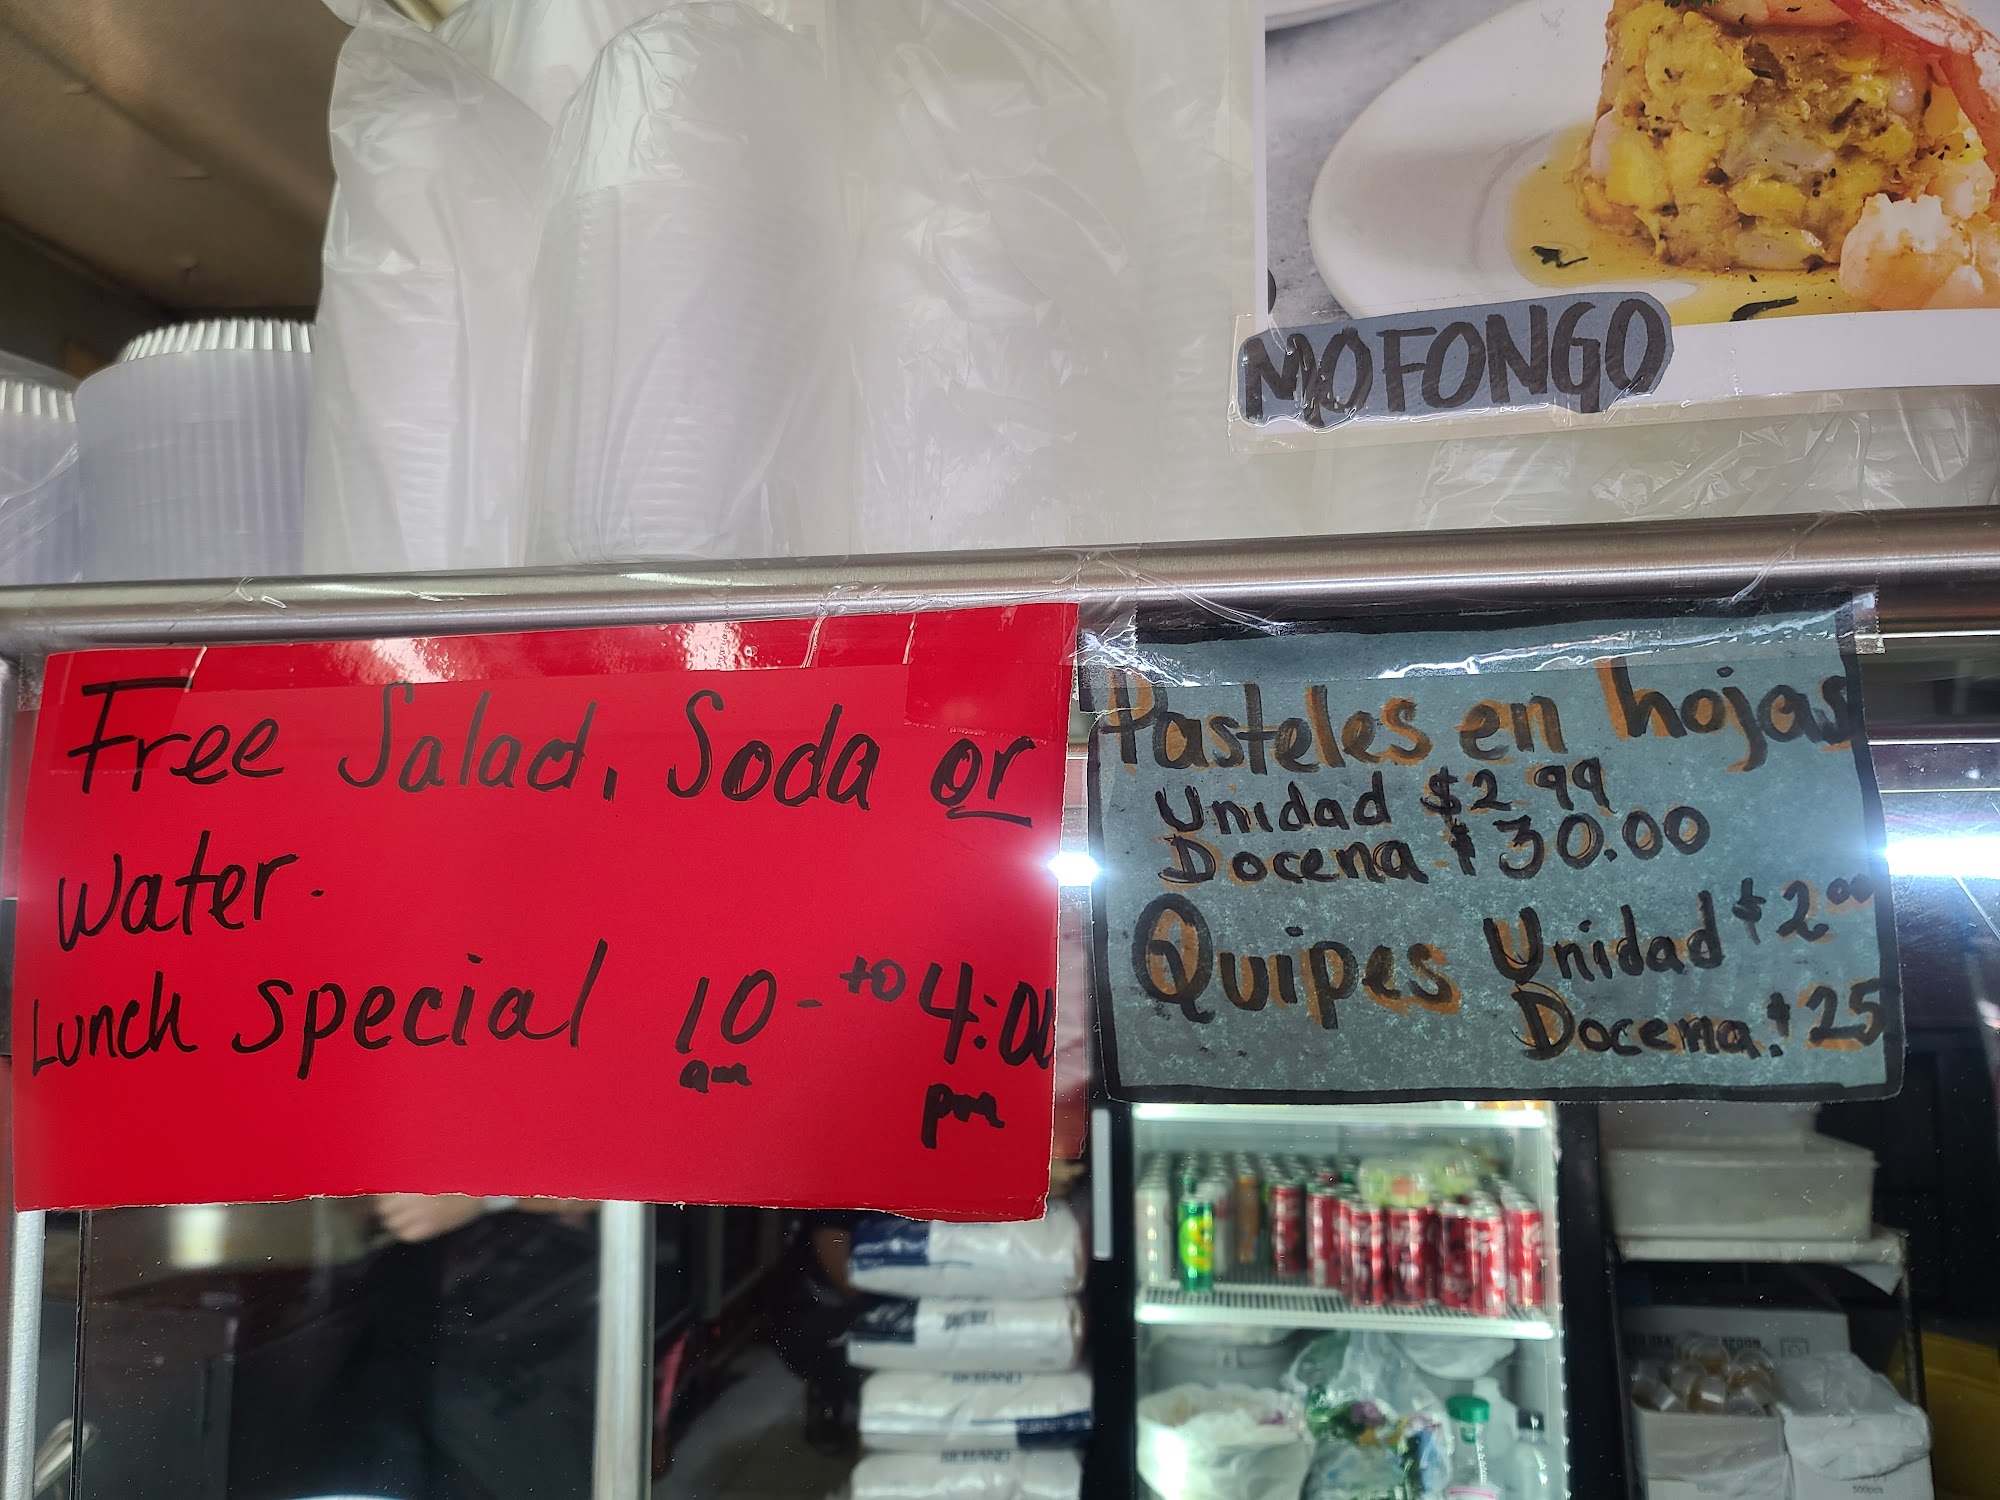 MOFONGO
Free Salad, Soda or
Water.
Lunch special 10 - to 4:00
am
pm
Pasteles en hojas
Unidad $2.99
Docena $30.00
Quipes Unidad $2.00
Docena. $25